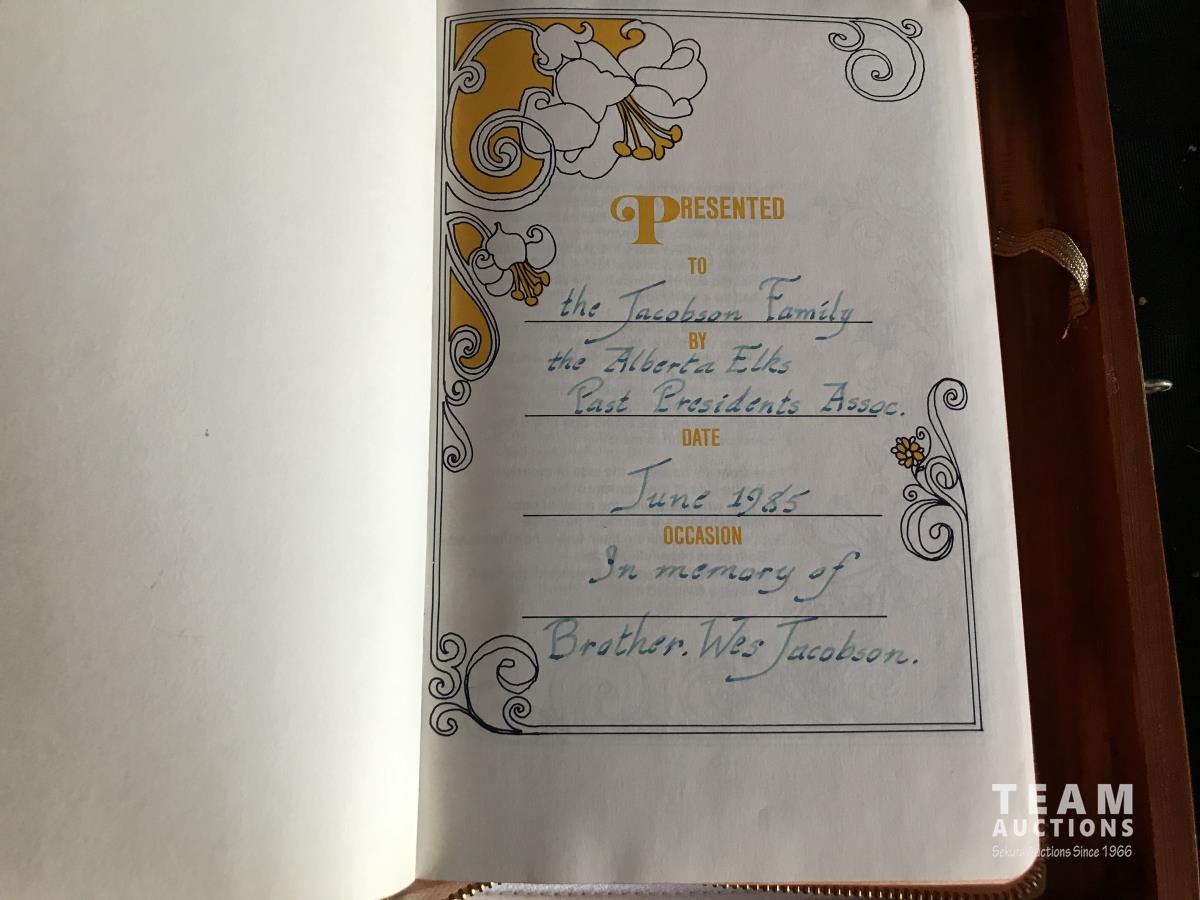 PRESENTED
TO
the Jacobson Family
BY
the Alberta Elks
Past Presidents Assoc.
DATE
June 1985
OCCASION
In memory of
Brother. Wes Jacobson.
TEAM
AUCTIONS
Sekura Auctions Since 1966